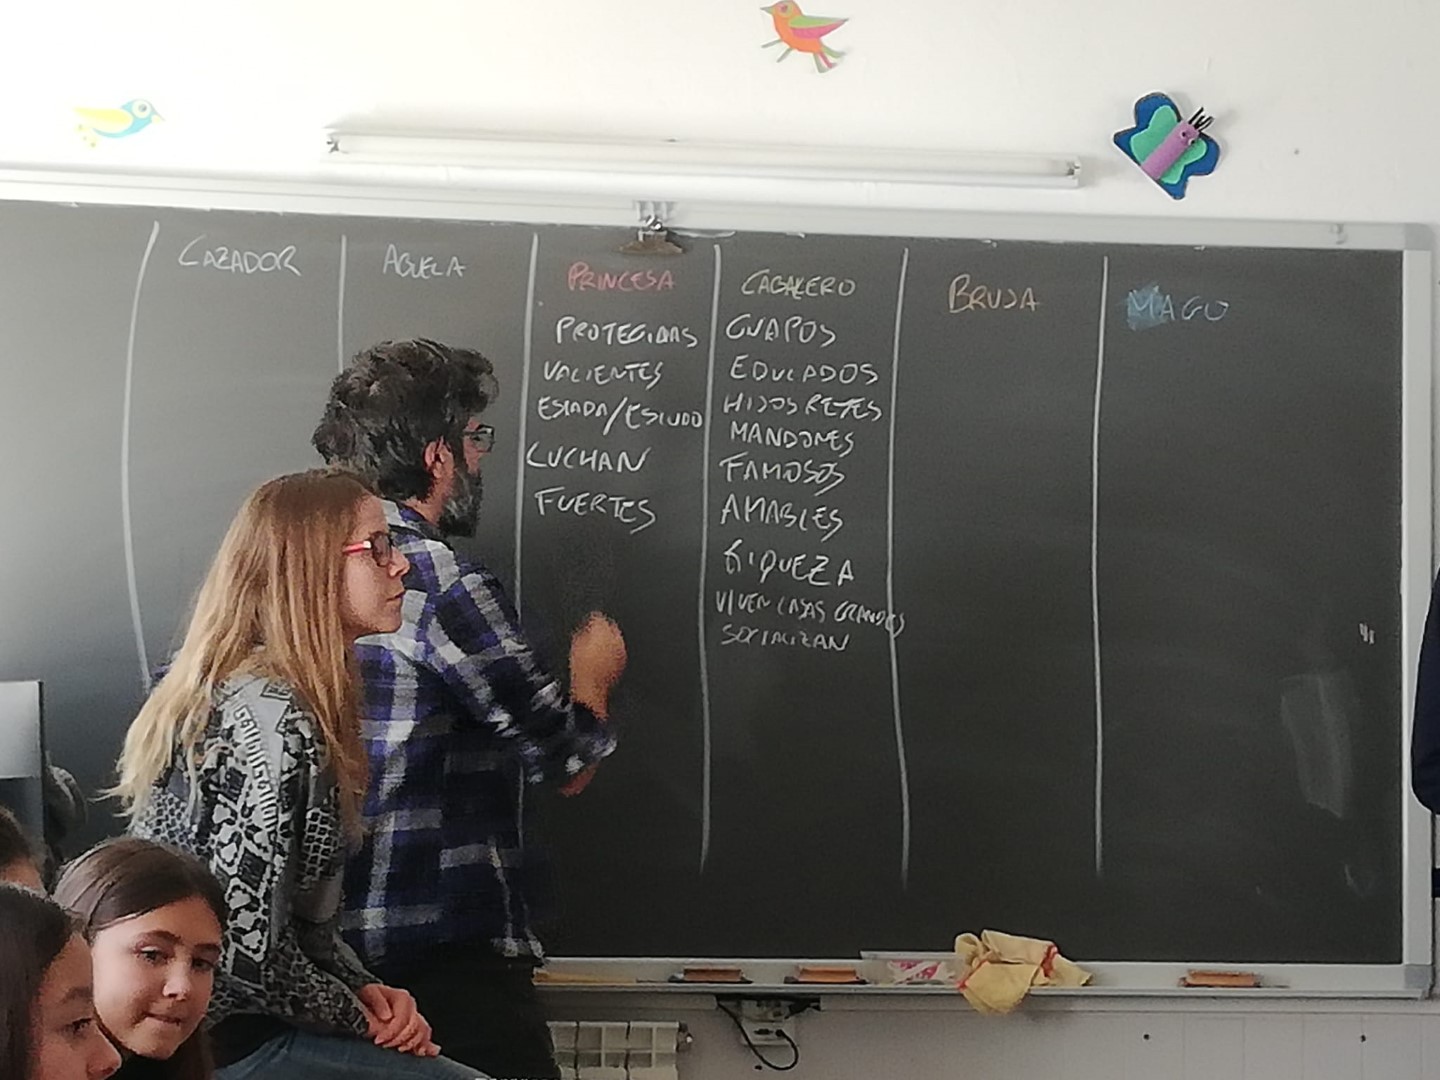 CAZADOR
AGUELA
PRINCESA
PROTEGIDAS
VALIENTES
ESPADA/ESCUDO
LUCHAN
FUERTES
CABALLERO
GUAPOS
EDUCADOS
HIJOS REYES
MANDONES
FAMOSOS
AMABLES
RIQUEZA
VIVEN CASAS GRANDES
SOCIALIZAN
BRUJA
MAGO